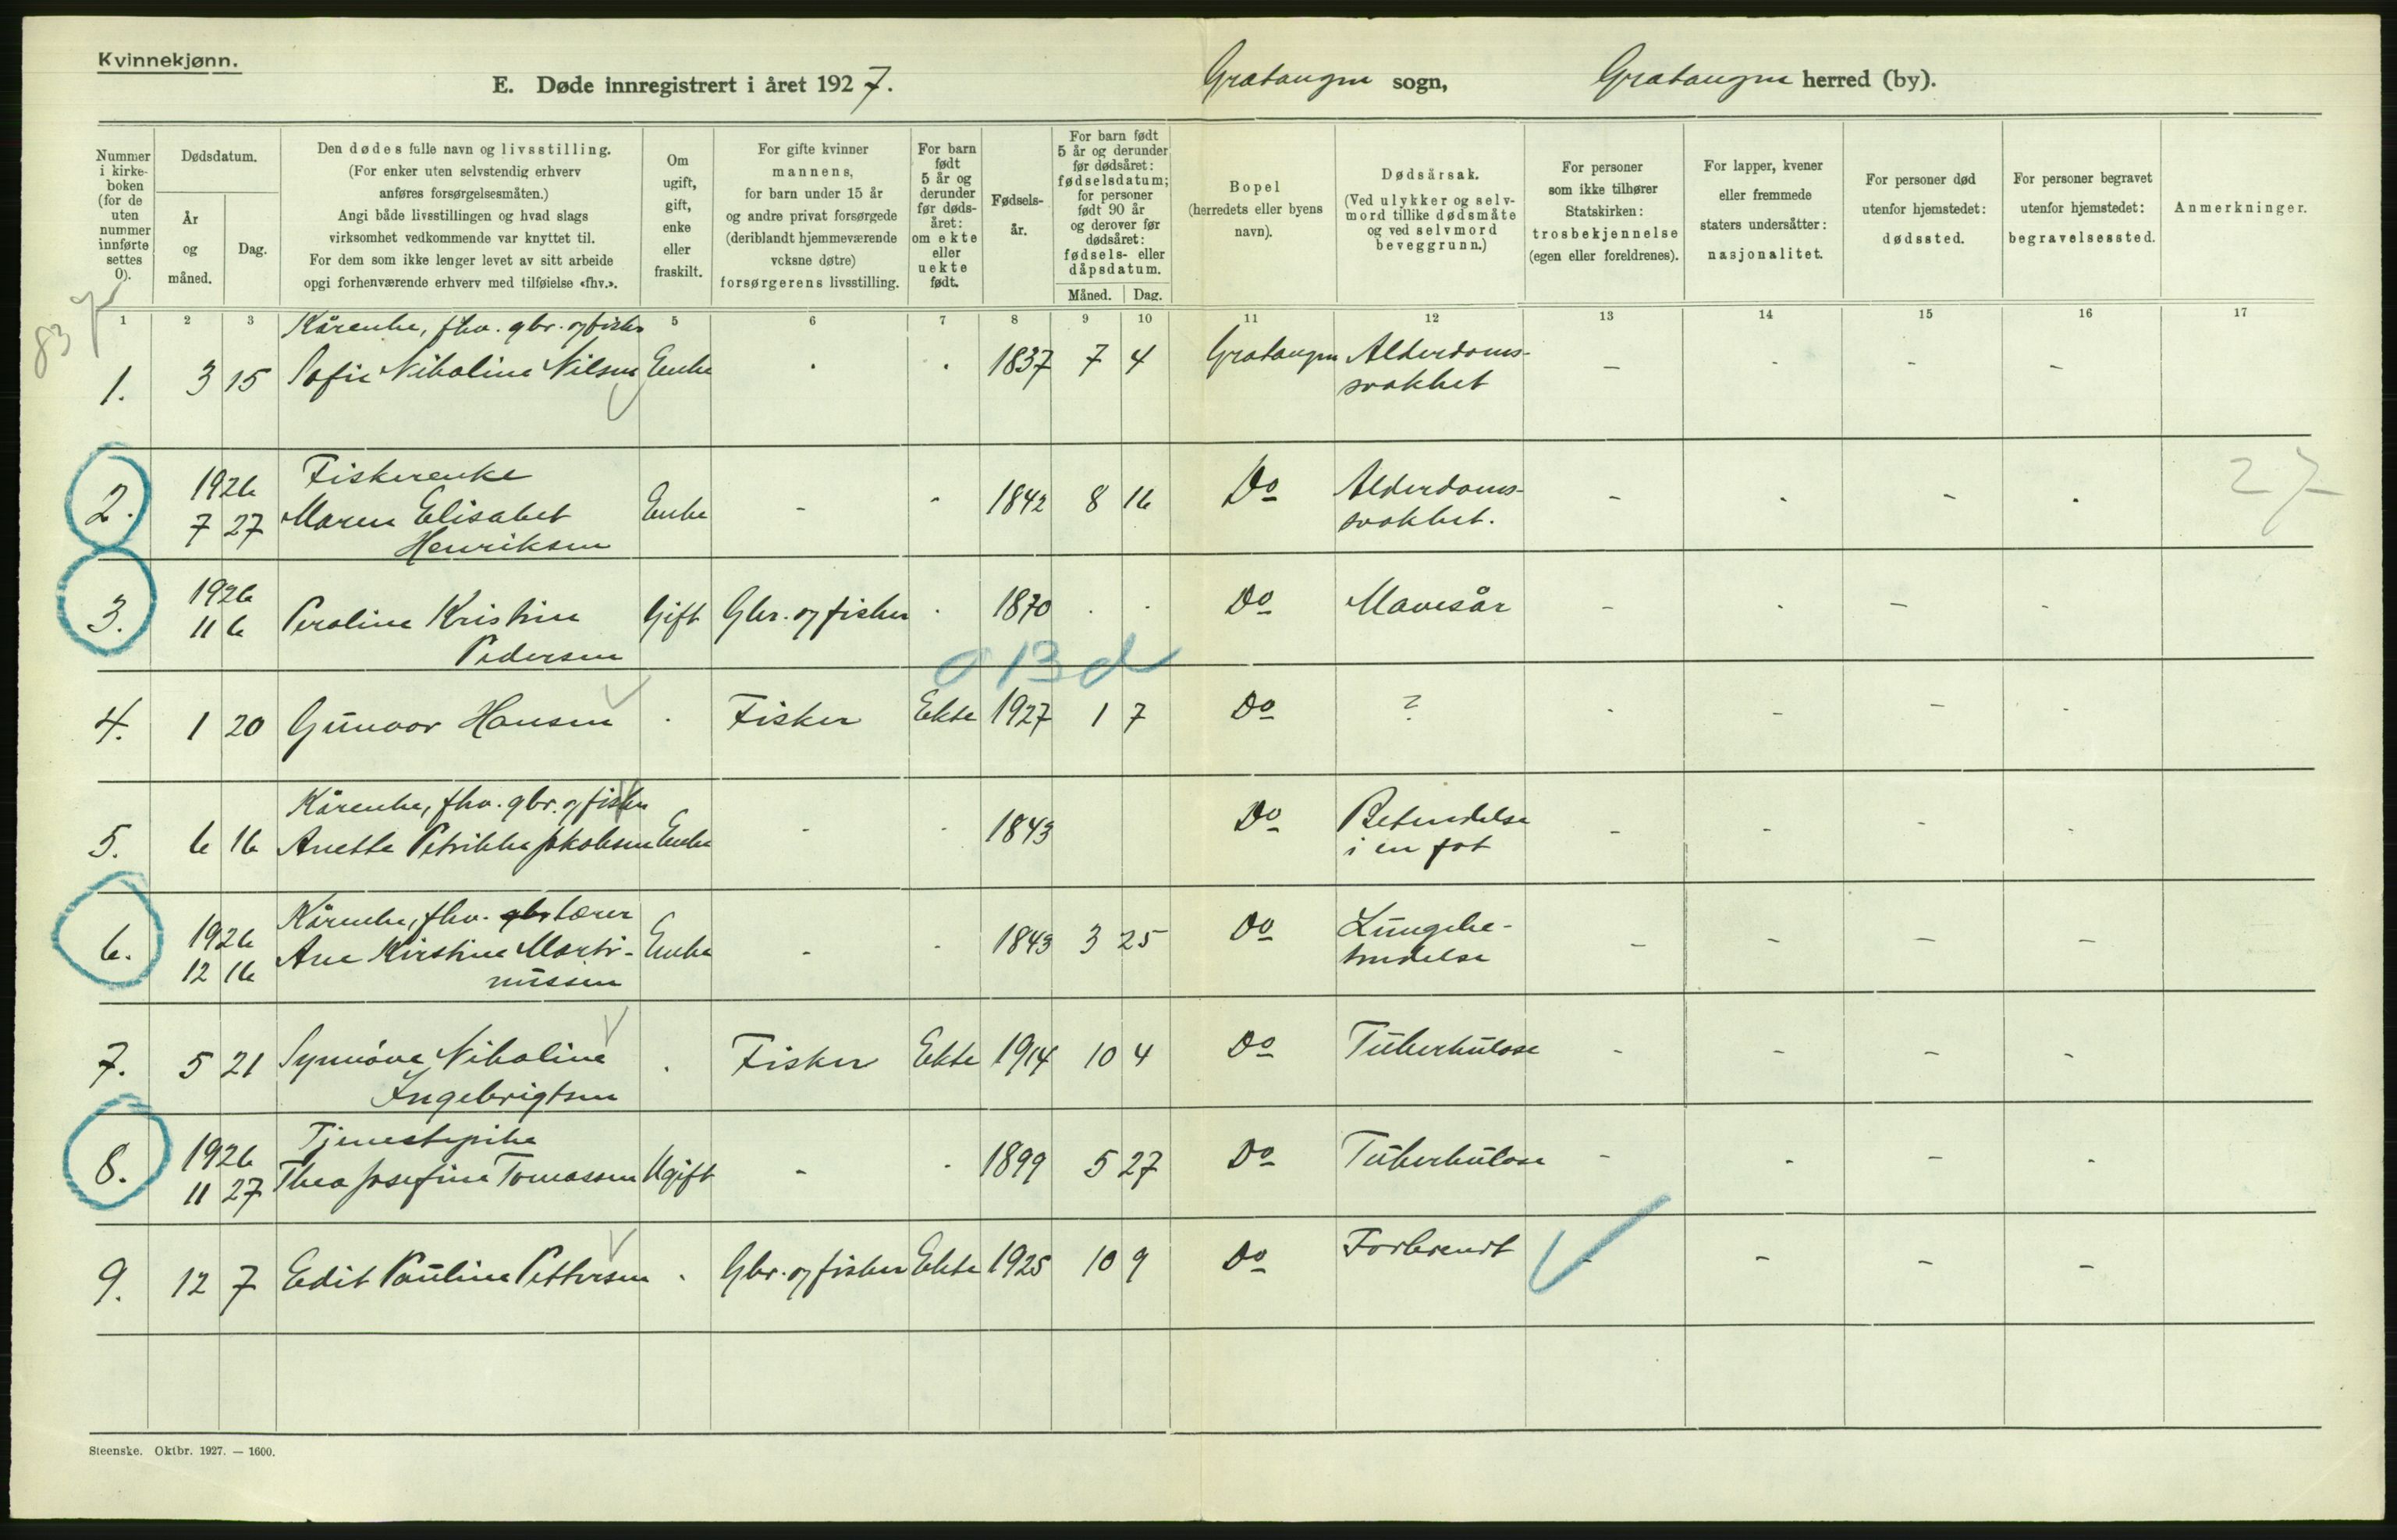 Kvinnekjønn.
E. Døde innregistrert i året 1927. Gratangen sogn, Gratangen herred (by).
Nummer i kirke-boken (for de uten nummer innførte settes 0).
Dødsdatum.
År og måned.
Dag.
Den dødes fulle navn og livsstilling.
(For enker uten selvstendig erhverv
anføres forsørgelsesmåten.)
Angi både livsstillingen og hvad slags
virksomhet vedkommende var knyttet til.
For dem som ikke lenger levet av sitt arbeide
opgi forhenværende erhverv med tilføielse «fhv.».
Om ugift, gift, enke eller fraskilt.
For gifte kvinner
mannens,
for barn under 15 år
og andre privat forsørgede
(deriblandt hjemmeværende
vcksne døtre)
forsørgerens livsstilling.
For barn født 5 år og derunder før døds-året: om ekte eller uekte født.
Fødsels-år.
For barn født
5 år og derunder
før dødsåret:
fødselsdatum;
for personer
født 90 år
og derover før
dødsåret:
fødsels- eller
dåpsdatum.
Måned. Dag.
Bopel
(herredets eller byens
navn).
Dødsårsak.
(Ved ulykker og selv-
mord tillike dødsmåte
og ved selvmord
beveggrunn.)
For personer
som ikke tilhører
Statskirken:
trosbekjennelse
(egen eller foreldrenes).
For lapper, kvener
eller fremmede
staters undersåtter:
nasjonalitet.
For personer død
utenfor hjemstedet:
dødssted.
For personer begravet
utenfor hjemstedet:
begravelsessted.
Anmerkninger.
1 2 3 5 6 7 8 9 10 11 12 13 14 15 16 17
83
Kårenke, fhv. gbr. og fisker
1. 3 15 Sofie Nikoline Nilsen Enke - - 1837 7 4 Gratangen Alderdoms-
svakhet - - - -
1926 Fiskerenke
2. 7 27 Maren Elisabet Enke - - 1842 8 16 Do Alderdoms-
Henriksen svakhet. - - - - 27
1926
3. 11 6 Peroline Kristine Gift Gbr. og fisker - 1870 - - Do Mavesår - - - -
Pedersen
13 d
4. 1 20 Gunvor Hansen - Fisker Ekte 1927 1 7 Do ? - - - -
Kårenke, fhv. gbr. og fisker
5. 6 16 Anette Petrikke Jakobsen Enke - - 1843 Do Betendelse
i en fot - - - -
Kårenke, fhv. gbr lærer
1926
6. 12 16 Ane Kirstine Marti- Enke - - 1843 3 25 Do Lungebe-
nussen tendelse - - - -
7. 5 21 Synnóve Nikoline - Fisker Ekte 1914 10 4 Do Tuberkulose - - - -
Ingebrigtsen
1926 Tjenestepike
8. 11 27 Thea Josefine Tomassen Ugift - - 1899 5 27 Do Tuberkulose - - - -
9. 12 7 Edit Pauline Pettersen - Gbr. og fisker Ekte 1925 10 9 Do Forbrendt - - - -
Steenske. Oktbr. 1927. — 1600.